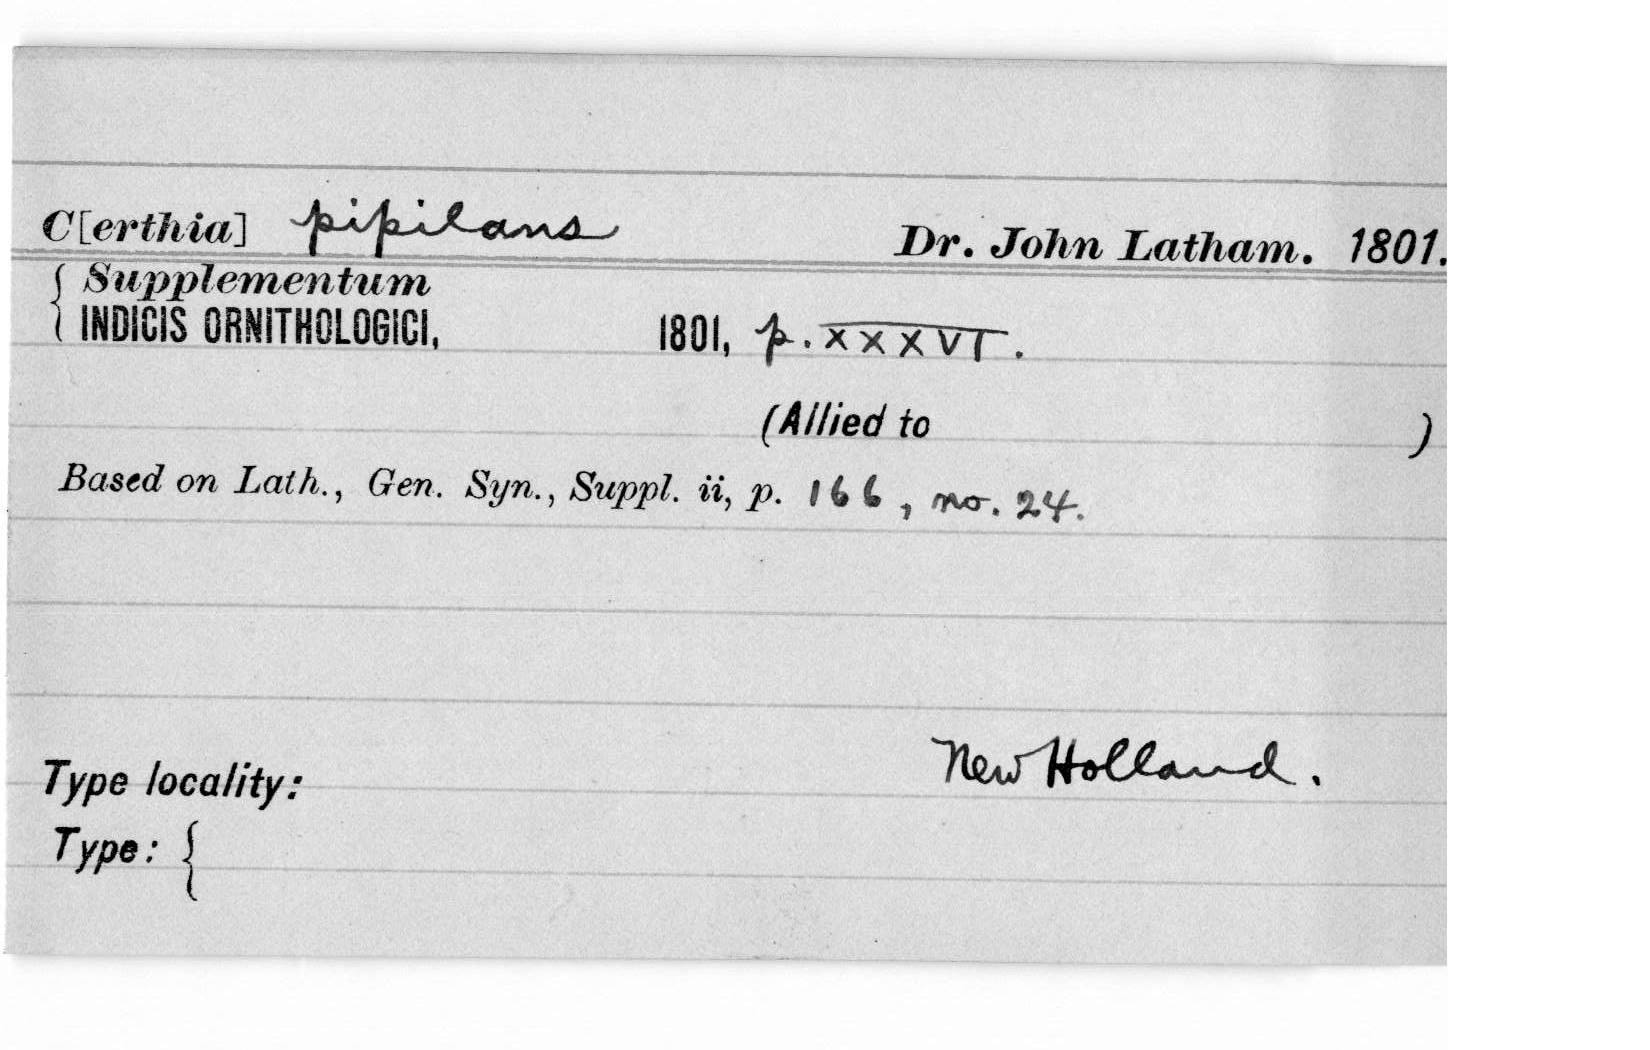 C[erthia] pipilans Dr. John Latham. 1801.
{ Supplementum
INDICIS ORNITHOLOGICI, 1801, p. XXXVI.
(Allied to )
Based on Lath., Gen. Syn., Suppl. ii, p. 166, no. 24.
New Holland.
Type locality:
Type: {